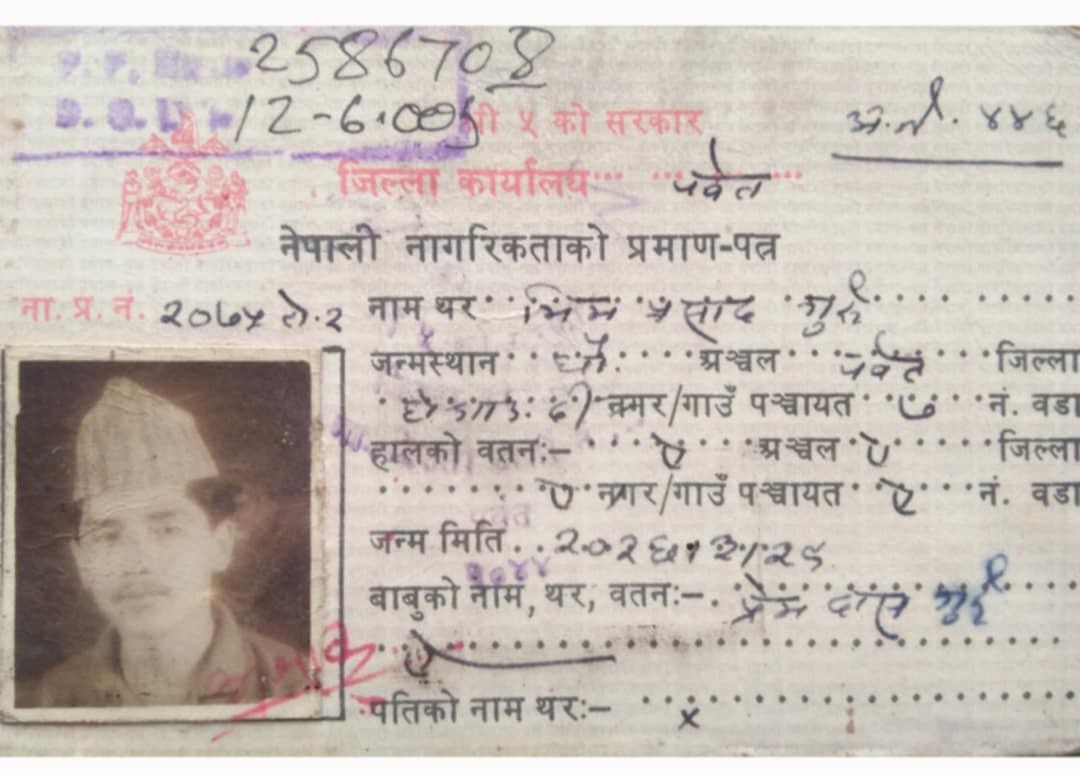 P. P. No. 2586708
D. O. I. 12-6-005
श्री ५ को सरकार
अ.नं. ४४६
जिल्ला कार्यालय पर्वत
नेपाली नागरिकताको प्रमाण-पत्र
ना. प्र. नं. २०७५ नाम थर भिम प्रसाद गुरुङ
जन्मस्थान धौ. अञ्चल पर्वत जिल्ला
नगर/गाउँ पञ्चायत ७ नं. वडा
हालको वतनः- ऐ अञ्चल ऐ जिल्ला
ऐ नगर/गाउँ पञ्चायत ऐ नं. वडा
जन्म मिति २०२६।३।२९
बाबुको नाम, थर, वतनः- प्रेम दास गुरुङ
ऐ
पतिको नाम थरः- x